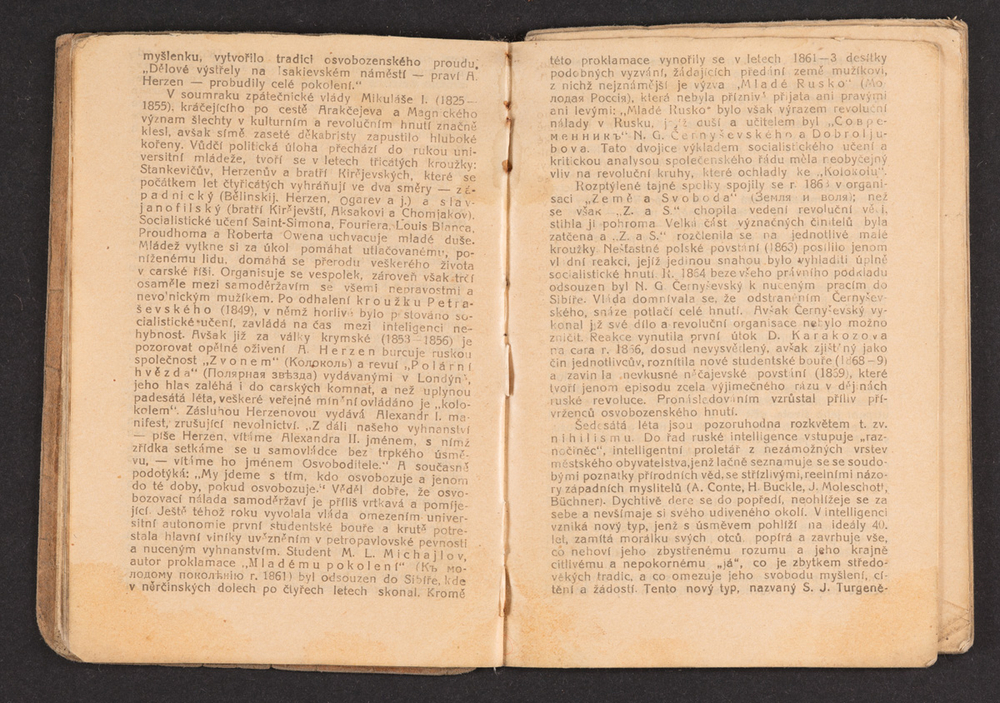 myšlenku, vytvořilo tradici osvobozenského proudu.
„Dělové výstřely na Isakievském náměstí — praví A.
Herzen — probudily celé pokolení.“
V soumraku zpátečnické vlády Mikuláše I. (1825–
1855), kráčejícího po cestě Arakčejeva a Magnického
význam šlechty v kulturním a revolučním hnutí značně
klesl, avšak símě zaseté děkabristy zapustilo hluboké
kořeny. Vůdčí politická úloha přechází do rukou uni-
versitní mládeže, tvoří se v letech třicátých kroužky:
Stankevičův, Herzenův a bratří Kirějevských, které se
počátkem let čtyřicátých vyhráňují ve dva směry — zá-
padnický (Bělinskij, Herzen, Ogarev a j.) a slav-
janofilský (bratří Kirějevští, Aksakovi a Chomjakov).
Socialistické učení Saint-Simona, Fouriera, Louis Blanca,
Proudhoma a Roberta Owena uchvacuje mladé duše.
Mládež vytkne si za úkol pomáhat utlačovanému, po-
níženému lidu, domáhá se přerodu veškerého života
v carské říši. Organisuje se vespolek, zároveň však trčí
osaměle mezi samoděržavím se všemi nepravostmi a
nevolnickým mužíkem. Po odhalení kroužku Petra-
ševského (1849), v němž horlivě bylo pěstováno so-
cialistické učení, zavládá na čas mezi inteligencí ne-
hybnost. Avšak již za války krymské (1853–1856) je
pozorovat opětné oživení A. Herzen burcuje ruskou
společnost „Zvonem“ (Колоколъ) a revuí „Polární
hvězda“ (Полярная звѣзда) vydávanými v Londýně,
jeho hlas zaléhá i do carských komnat, a než uplynou
padesátá léta, veškeré veřejné mínění ovládáno je „kolo-
kolem“. Zásluhou Herzenovou vydává Alexandr I. ma-
nifest, zrušující nevolnictví. „Z dáli našeho vyhnanství
— píše Herzen, vítáme Alexandra II. jménem, s nímž
zřídka setkáme se u samovládce bez trpkého úsmě-
vu, — vítáme ho jménem Osvoboditele.“ A současně
podotýká: „My jdeme s tím, kdo osvobozuje a jenom
do té doby, pokud osvobozuje.“ Věděl dobře, že osvo-
bozovací nálada samoděržaví je příliš vrtkavá a pomíje-
jící. Ještě téhož roku vyvolala vláda omezením univer-
sitní autonomie první studentské bouře a krutě potre-
stala hlavní viníky uvězněním v petropavlovské pevnosti
a nuceným vyhnanstvím. Student M. L. Michajlov,
autor proklamace „Mladému pokolení“ (Къ мо-
лодому поколѣнію r. 1861) byl odsouzen do Sibíře, kde
v něrčinských dolech po čtyřech letech skonal. Kromě
této proklamace vynořily se v letech 1861–3 desítky
podobných vyzvání, žádajících předání země mužíkovi,
z nichž nejznámější je výzva „Mladé Rusko“ (Мо-
лодая Россія), která nebyla příznivě přijata ani pravými
ani levými: „Mladé Rusko“ bylo však výrazem revoluční
nálady v Rusku, jejíž duší a učitelem byl „Совре-
менникъ“ N. G. Černyševského a Dobrolju-
bova. Tato dvojice výkladem socialistického učení a
kritickou analysou společenského řádu měla neobyčejný
vliv na revoluční kruhy, které ochladly ke „Kolokolu“.
Rozptýlené tajné spolky spojily se r. 186 v organi-
saci „Země a Svoboda“ (Земля и воля); než
se však „Z. a S.“ chopila vedení revoluční věci,
stihla ji pohroma Velká část význačných činitelů byla
zatčena a „Z. a S.“ rozčlenila se na jednotlivé malé
kroužky. Nešťastné polské povstání (1863) posílilo jenom
vládní reakci, jejíž jedinou snahou bylo vyhladiti úplně
socialistické hnutí. R. 1864 beze všeho právního podkladu
odsouzen byl N. G. Černyševský k nuceným pracím do
Sibíře. Vláda domnívala se, že odstraněním Černyšev-
ského, snáze potlačí celé hnutí. Avšak Černyševský vy-
konal již své dílo a revoluční organisace nebylo možno
zničit. Reakce vynutila první útok D. Karakozova
na cara r. 1866, dosud nevysvětlený, avšak zjištěný jako
čin jednotlivcův, roznítila nové studentské bouře (1868–9)
a zavinila nevkusné nečajevské povstání (1869), které
tvoří jenom episodu zcela výjimečného rázu v dějinách
ruské revoluce. Pronásledováním vzrůstal příliv pří-
vrženců osvobozenského hnutí.
Šedesátá léta jsou pozoruhodna rozkvětem t. zv.
nihilismu. Do řad ruské intelligence vstupuje „raz-
nočiněc“, intelligentní proletář z nezámožných vrstev
městského obyvatelstva, jenž lačně seznamuje se se soudo-
bými poznatky přírodních věd, se střízlivými, reelními názo-
ry západních myslitelů (A. Conte, H. Buckle, J. Moleschot,
Büchner). Dychtivě dere se do popředí, neohlížeje se za
sebe a nevšímaje si svého udiveného okolí. V intelligenci
vzniká nový typ, jenž s úsměvem pohlíží na ideály 40.
let, zamítá morálku svých otců, popírá a zavrhuje vše,
co nehoví jeho zbystřenému rozumu a jeho krajně
citlivému a nepokornému „já“, co je zbytkem středo-
věkých tradic, a co omezuje jeho svobodu myšlení, cí-
tění a žádostí. Tento nový typ, nazvaný S. J. Turgeně-